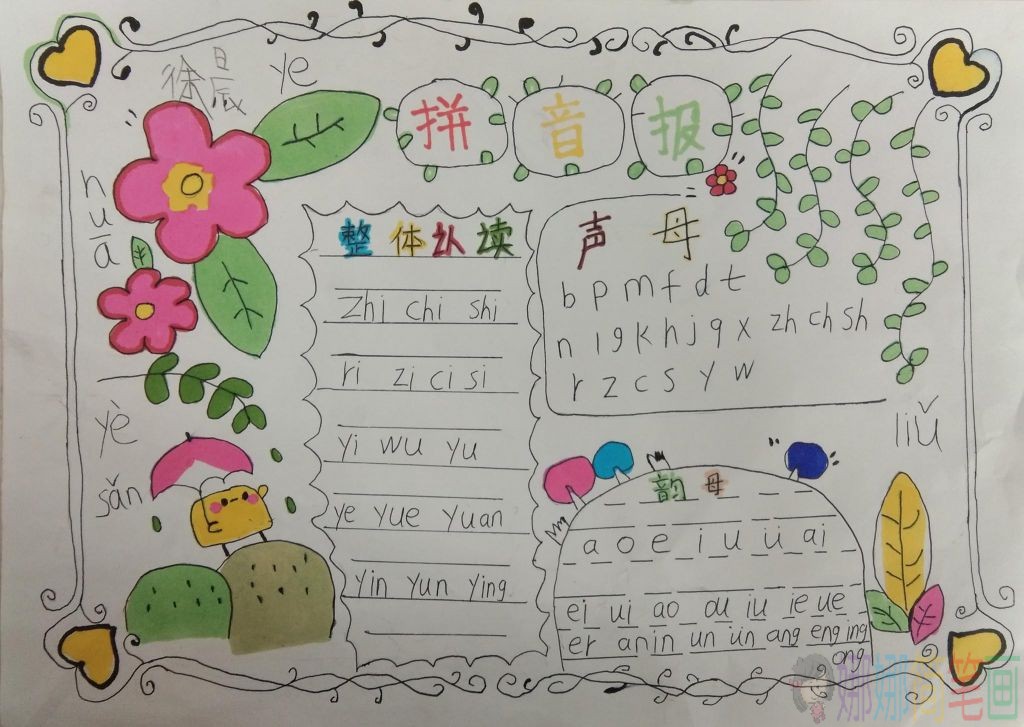 徐晨
ye
拼音报
huā
整体认读
zhi chi shi
ri zi ci si
yi wu yu
ye yue yuan
yin yun ying
声母
b p m f d t
n l g k h j q x zh ch sh
r z c s y w
yè
sǎn
liǔ
韵母
a o e i u ü ai
ei ui ao ou iu ie ue
er an in un ün ang eng ing
ong
娜娜 笔画